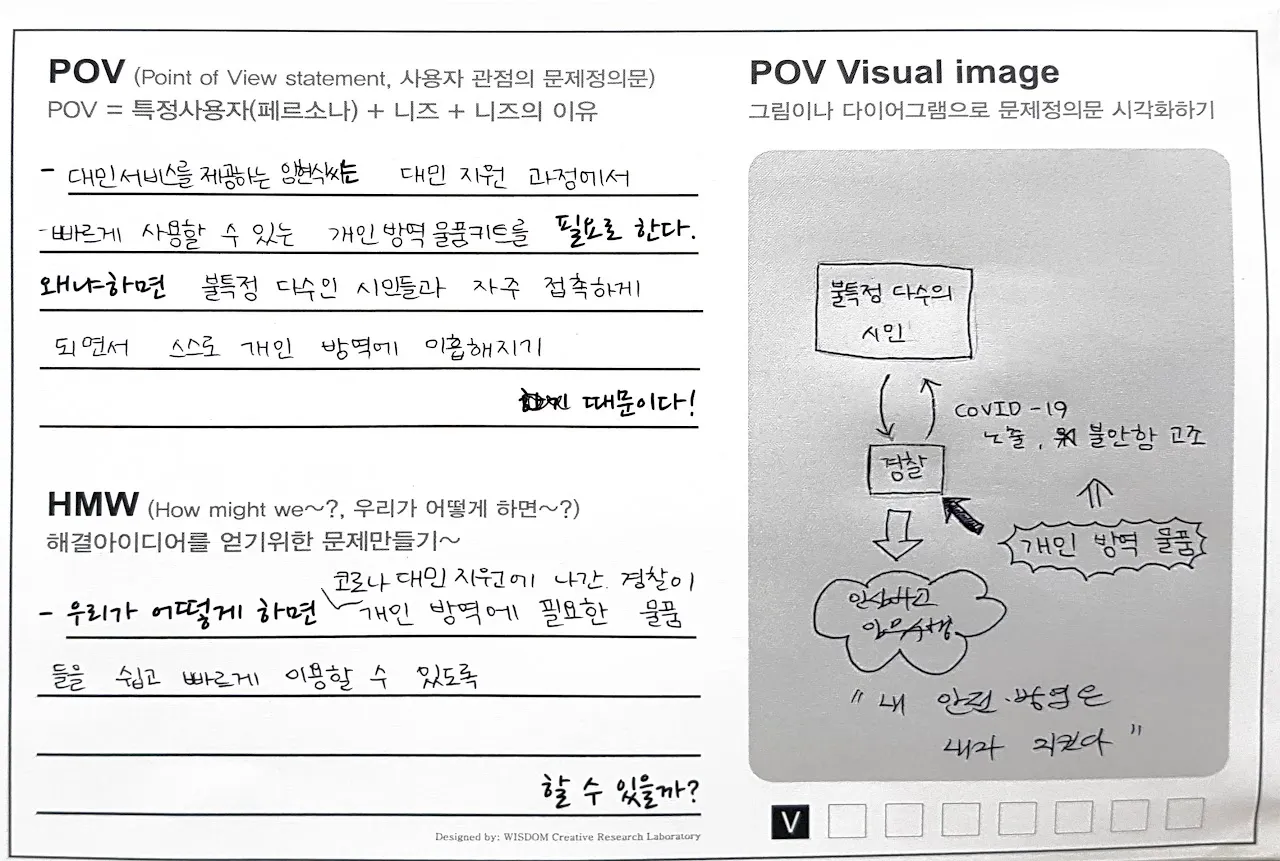 POV (Point of View statement, 사용자 관점의 문제정의문)
POV = 특정사용자(페르소나) + 니즈 + 니즈의 이유
- 대민서비스를 제공하는 임현식씨는 대민 지원 과정에서
- 빠르게 사용할 수 있는 개인 방역 물품키트를 필요로 한다.
왜냐하면 불특정 다수인 시민들과 자주 접촉하게
되면서 스스로 개인 방역에 미흡해지기
때문이다!
HMW (How might we~?, 우리가 어떻게 하면~?)
해결아이디어를 얻기위한 문제만들기~
코로나 대민 지원에 나간 경찰이
- 우리가 어떻게 하면 개인 방역에 필요한 물품
들을 쉽고 빠르게 이용할 수 있도록
할 수 있을까?
Designed by: WISDOM Creative Research Laboratory
POV Visual image
그림이나 다이어그램으로 문제정의문 시각화하기
불특정 다수의
시민
COVID-19
노출, 불안함 고조
경찰
개인 방역 물품
안심하고
임무수행
" 내 안전·방역은
내가 지킨다 "
V